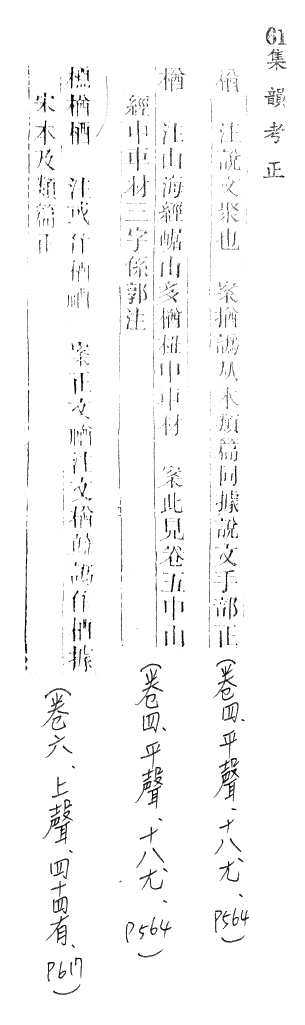 61集韻考正
楢　注說文聚也　案揂譌从木類篇同據說文手部正(卷四、平聲、十八尤、P564)
楢　注山海經崌山多楢杻中車材　案此見卷五中山(卷四、平聲、十八尤、P564)
經中車材三字係郭注
槱楢栖　注或作栖　案正文注文楢竝譌作栖據(卷六、上聲、四十四有、P617)
宋本及類篇正